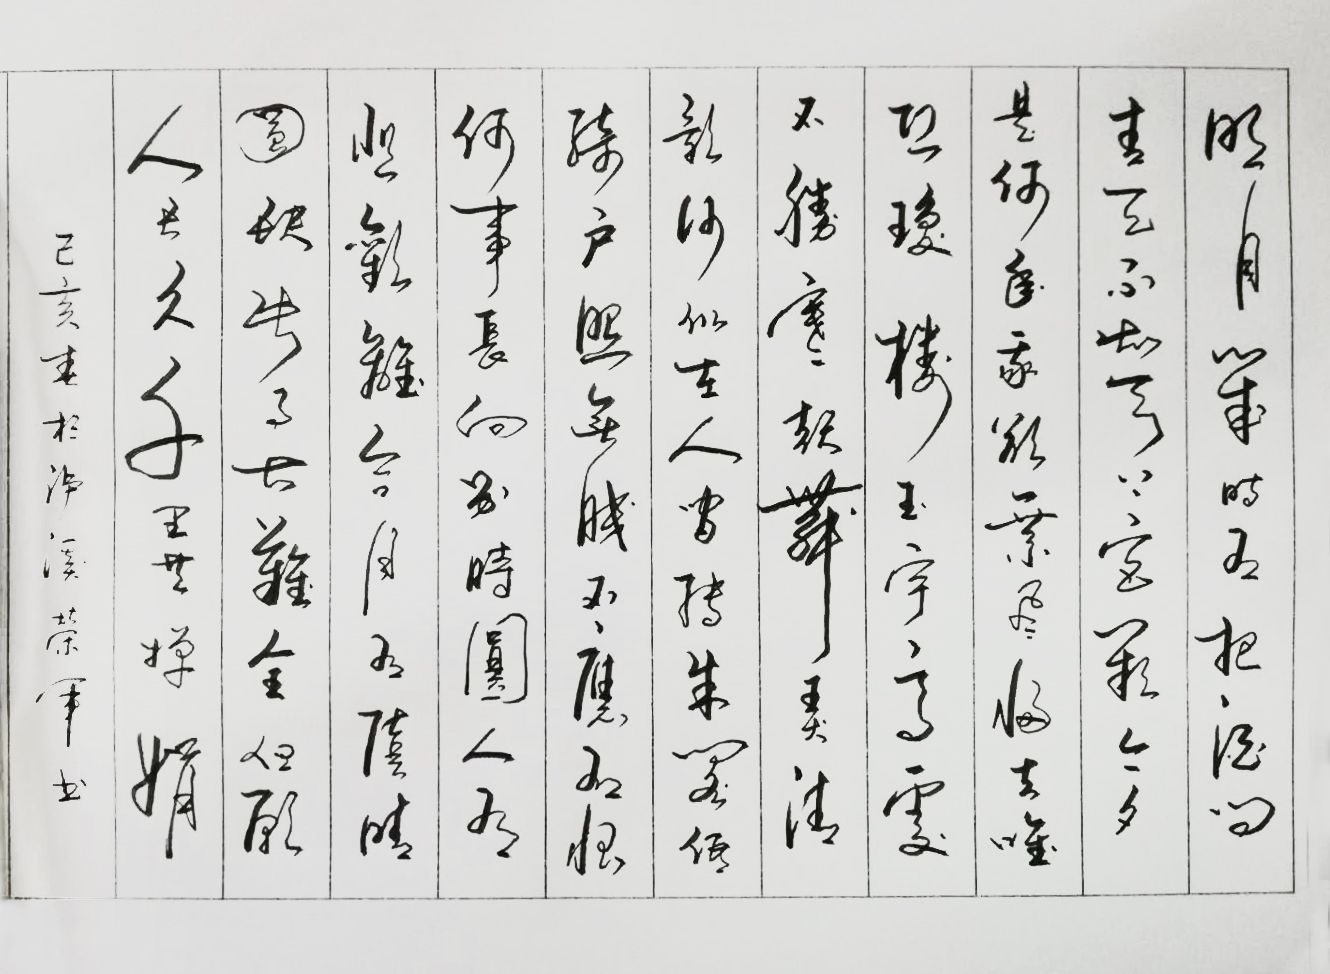 明月幾時有把酒問
青天不知天上宮闕今夕
是何年我欲乘風歸去唯
恐瓊樓玉宇高處
不勝寒起舞弄清
影何似在人間轉朱閣低
綺戶照無眠不應有恨
何事長向別時圓人有
悲歡離合月有陰晴
圓缺此事古難全但願
人長久千里共嬋娟
己亥春於溪榮軍書